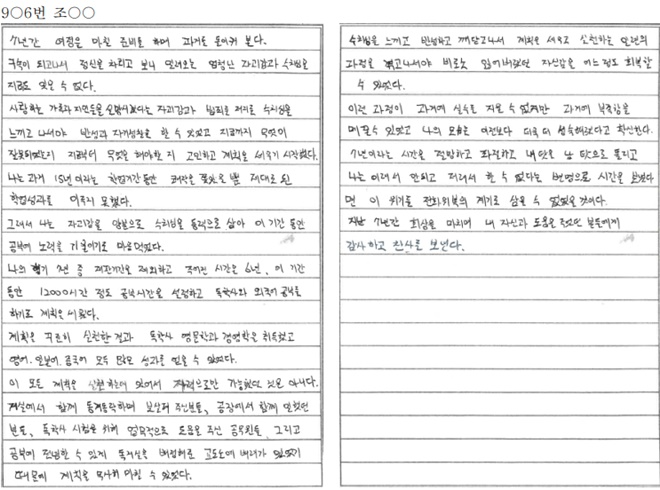 9○6번 조○○
7년간 여정을 마칠 준비를 하며 과거를 돌이켜 본다.
구속이 되고나서 정신을 차리고 보니 밀려오는 엄청난 자괴감과 수치심을
지금도 잊을 수 없다.
사랑하는 가족과 지인들을 실망시켰다는 자괴감과 범죄를 저지른 수치심을
느끼고 나서야 반성과 자기성찰을 할 수 있었고 지금까지 무엇이
잘못되었는지 지금부터 무엇을 해야할 지 고민하고 계획을 세우기 시작했다.
나는 과거 15년 이라는 학업기간 동안 허락을 쫓았을 뿐 제대로 된
학업성과를 이루지 못했다.
그래서 나는 자괴감을 안분으로 수치심을 동력으로 삼아 이 기간 동안
공부에 노력을 기울이기로 마음먹었다.
나의 형기 7년 중 재판기간을 제외하고 주어진 시간은 6년, 이 기간
동안 12000시간 정도 공부시간을 설정하고 독학사와 외국어 공부를
하기로 계획을 세웠다.
계획을 꾸준히 실천한 결과 독학사 영문학과 경영학을 취득하고
영어, 일본어, 중국어 모두 많은 성과를 얻을 수 있었다.
이 모든 계획을 실천하는데 있어서 자력으로만 가능했던 것은 아니다.
거실에서 함께 동거동락하며 보살펴 주신분들, 공장에서 함께 일했던
분들, 독학사 시험을 위해 업무적으로 도움을 주신 공무원들 그리고
공부에 전념할 수 있게 독거실을 배정해준 고도소에 배려가 있었기
때문에 계획을 무사히 마칠 수 있었다.
수치심을 느끼고 반성하고 깨닫고나서 계획을 세우고 실천하는 일련의
과정을 겪고나서야 비로소 잃어버렸던 자신감을 어느정도 회복할
수 있었다.
이런 과정이 과거에 실수를 지울 수 없지만 과거에 부족함을
메꿀수 있었고 나의 모습은 이전보다 더욱 더 성숙해졌다고 확신한다.
7년이라는 시간을 절망하고 좌절하고 내 탓을 남 탓으로 돌리고
나는 이래서 안되고 저래서 할 수 없다는 변명으로 시간을 보냈다
면 이 위기를 전화위복의 계기로 삼을 수 없었을 것이다.
지난 7년간 회상을 마치며 내 자신과 도움을 주었던 분들에게
감사하고 찬사를 보낸다.